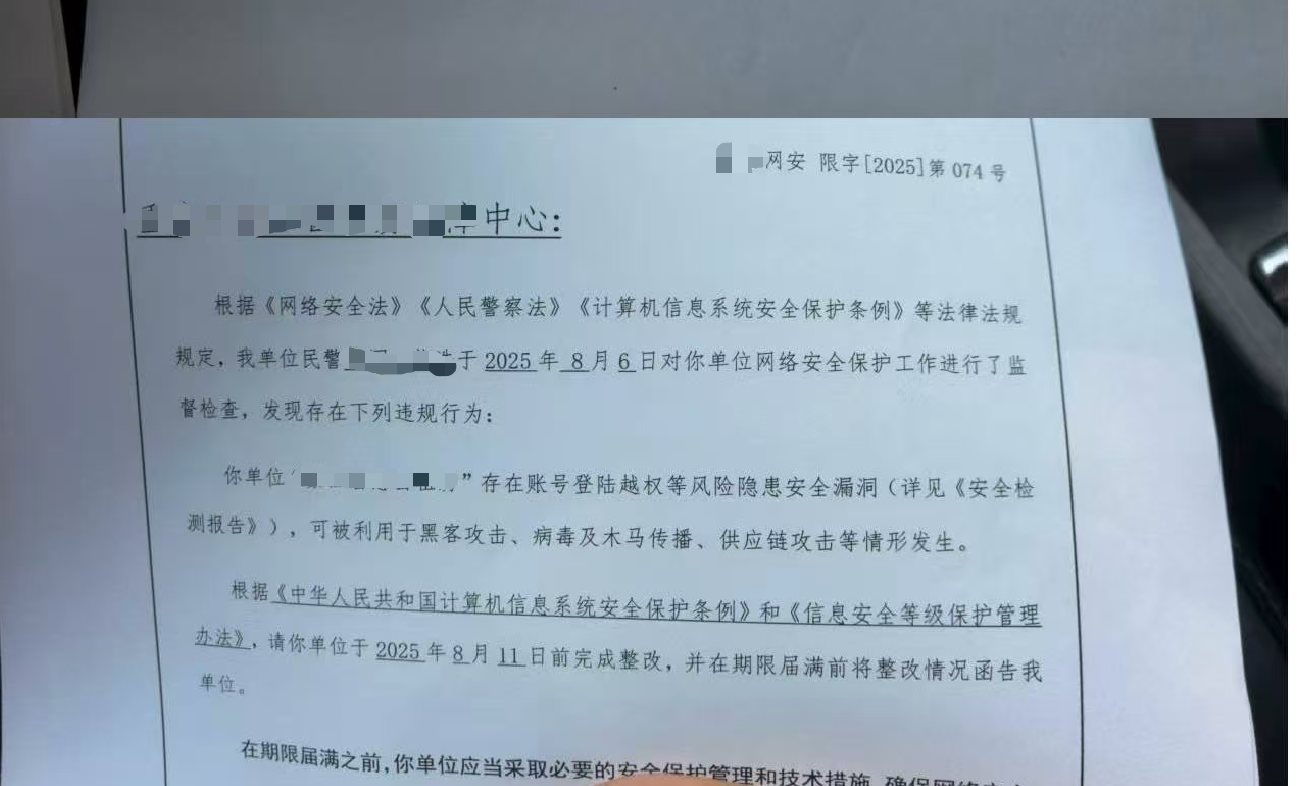 网安 限字[2025]第 074 号
中心:
根据《网络安全法》《人民警察法》《计算机信息系统安全保护条例》等法律法规
规定，我单位民警 于 2025 年 8 月 6 日对你单位网络安全保护工作进行了监
督检查，发现存在下列违规行为：
你单位“ ”存在账号登陆越权等风险隐患安全漏洞（详见《安全检
测报告》），可被利用于黑客攻击、病毒及木马传播、供应链攻击等情形发生。
根据《中华人民共和国计算机信息系统安全保护条例》和《信息安全等级保护管理
办法》，请你单位于 2025 年 8 月 11 日前完成整改，并在期限届满前将整改情况函告我
单位。
在期限届满之前，你单位应当采取必要的安全保护管理和技术措施，确保网络